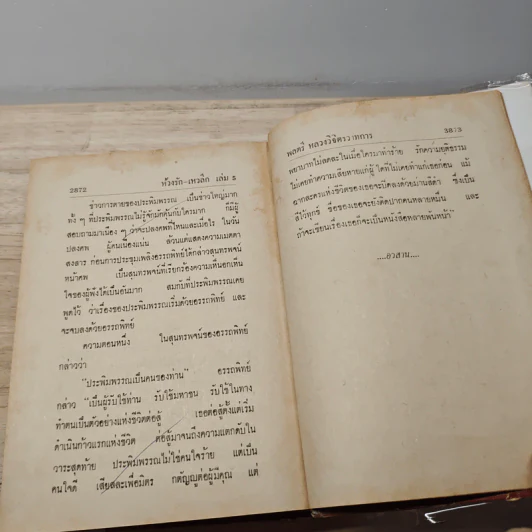 2872 ห้วงรัก-เหวลึก เล่ม 5
ข่าวการตายของประพิมพรรณ เป็นข่าวใหญ่มาก
ทั้ง ๆ ที่ประพิมพรรณไม่รู้จักมักคุ้นกับใครมาก ก็มีผู้
สอบถามมาเนือง ๆ ว่าจะปลงศพที่ไหนและเมื่อไร ในวัน
ปลงศพ ผู้คนเนืองแน่น ล้วนแต่แสดงความเมตตา
สงสาร ก่อนการประชุมเพลิงอรรถพิทย์ได้กล่าวสุนทรพจน์
หน้าศพ เป็นสุนทรพจน์ที่เรียกร้องความเห็นอกเห็น
ใจของผู้ฟังได้เป็นอันมาก สมกับที่ประพิมพรรณเคย
พูดไว้ ว่าเรื่องของประพิมพรรณเริ่มด้วยอรรถพิทย์ และ
จะจบลงด้วยอรรถพิทย์
ความตอนหนึ่ง ในสุนทรพจน์ของอรรถพิทย์
กล่าวว่า
"ประพิมพรรณเป็นคนของท่าน" อรรถพิทย์
กล่าว "เป็นผู้รับใช้ท่าน รับใช้มหาชน รับใช้ในทาง
ทำตนเป็นตัวอย่างแห่งชีวิตต่อสู้ เธอต่อสู้ตั้งแต่เริ่ม
ดำเนินก้าวแรกแห่งชีวิต ต่อสู้มาจนถึงความแตกดับใน
วาระสุดท้าย ประพิมพรรณไม่ใช่คนใจร้าย แต่เป็น
คนใจดี เสียสละเพื่อมิตร กตัญญูต่อผู้มีคุณ แต่
พลตรี หลวงวิจิตรวาทการ 2873
พยาบาทไม่ลดละในเมื่อใครมาทำร้าย รักความยุติธรรม
ไม่เคยทำความเสียหายแก่ผู้ใดที่ไม่เคยทำแก่เธอก่อน แม้
ฉากละครแห่งชีวิตของเธอจะปิดลงด้วยม่านสีดำ ซึ่งเป็น
สีไว้ทุกข์ ชื่อของเธอจะยังติดปากคนหลายหมื่น และ
ถ้าจะเขียนเรื่องเธอก็จะเป็นหนังสือหลายพันหน้า"
....อวสาน....